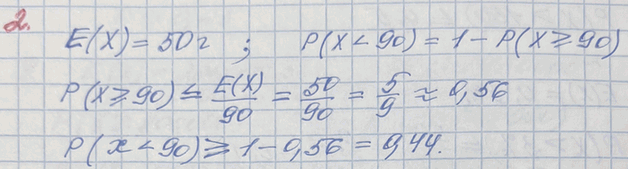 2.
E(X) = 50 г ; P(X < 90) = 1 - P(X ≥ 90)
P(X ≥ 90) ≤ E(X)/90 = 50/90 = 5/9 ≈ 0,56
P(x < 90) ≥ 1 - 0,56 = 0,44.